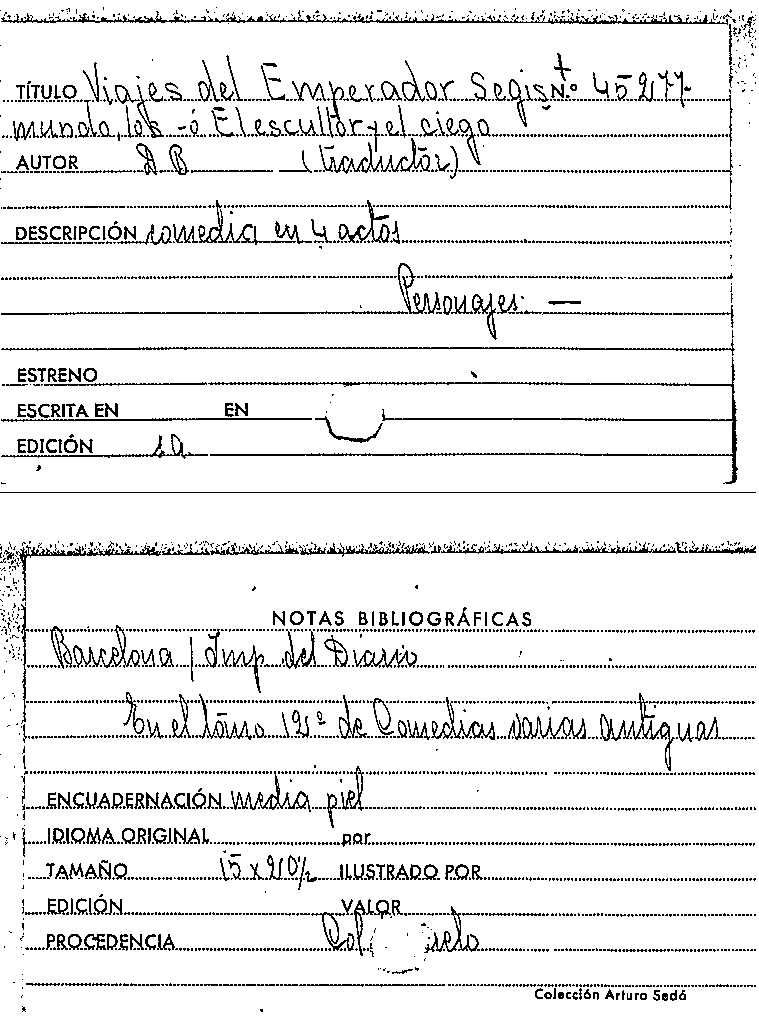 TÍTULO Viajes del Emperador Segis- N.º 45277
mundo, los -ó El escultor y el ciego
AUTOR D B (traductor)
DESCRIPCIÓN comedia en 4 actos
Personajes: —
ESTRENO
ESCRITA EN EN
EDICIÓN s.a.
NOTAS BIBLIOGRÁFICAS
Barcelona / Imp. del Diario
En el tomo 12º de Comedias varias antiguas
ENCUADERNACIÓN media piel
IDIOMA ORIGINAL por
TAMAÑO 15 x 20½ ILUSTRADO POR
EDICIÓN VALOR
PROCEDENCIA
Colección Arturo Sedó